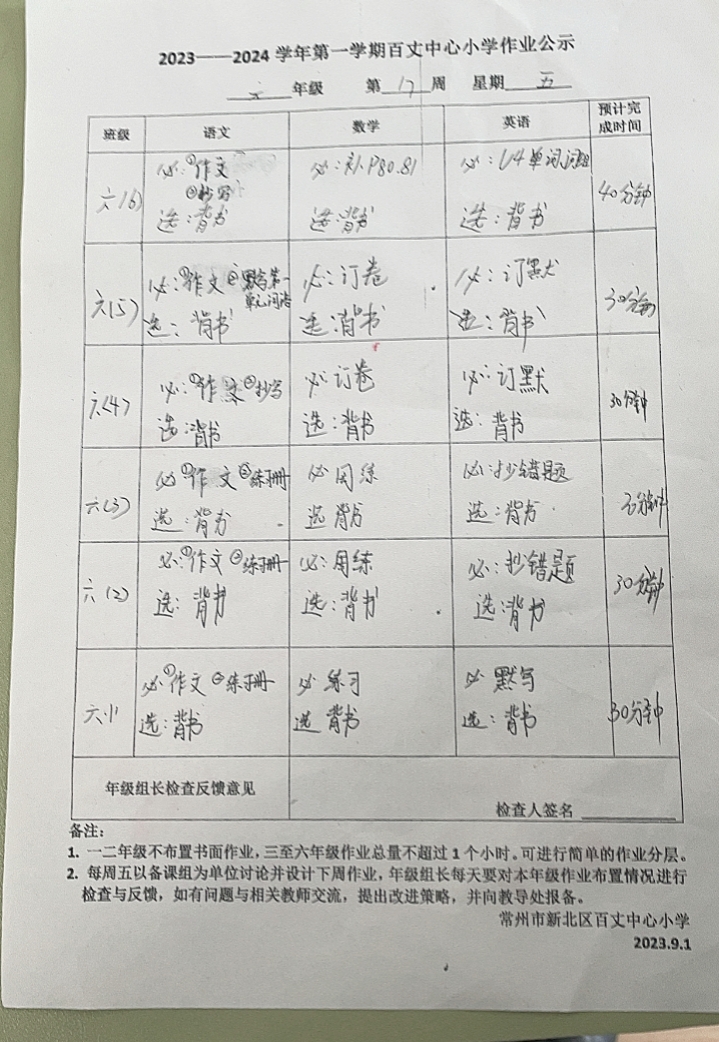 2023——2024 学年第一学期百丈中心小学作业公示
六 年级 第 17 周 星期 五
班级 语文 数学 英语 预计完
成时间
六(6) 必:①作文 必:补P80.81 必:U4单词词组 40分钟
②抄写
选:背书 选:背书 选:背书
六(5) 必:①作文②默写第一 必:订卷 必:订默 30分钟
单元词语
选:背书 选:背书 选:背书
六(4) 必:①作文②抄写 必:订卷 必:订默 30分钟
选:背书 选:背书 选:背书
六(3) 必①作文②练册 必周练 必:抄错题 分钟
选:背书 选背书 选:背书
六(2) 必:①作文②练册 必:周练 必:抄错题 30分钟
选:背书 选:背书 选:背书
六(1) 必①作文②练册 必练习 必默写 30分钟
选:背书 选背书 选:背书
年级组长检查反馈意见
检查人签名
备注:
1. 一二年级不布置书面作业,三至六年级作业总量不超过 1 个小时。可进行简单的作业分层。
2. 每周五以备课组为单位讨论并设计下周作业,年级组长每天要对本年级作业布置情况进行
检查与反馈,如有问题与相关教师交流,提出改进策略,并向教导处报备。
常州市新北区百丈中心小学
2023.9.1